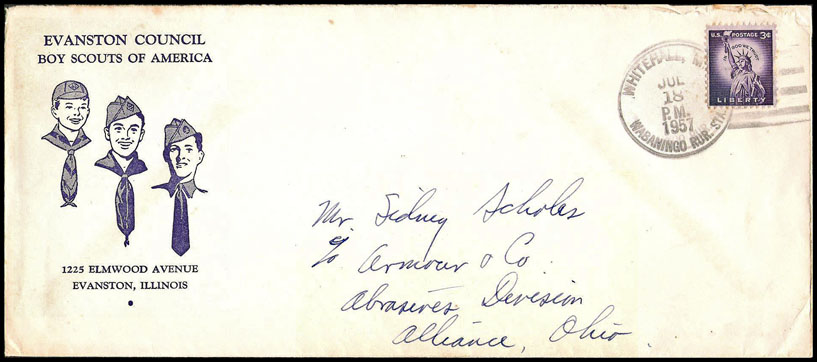 EVANSTON COUNCIL
BOY SCOUTS OF AMERICA
1225 ELMWOOD AVENUE
EVANSTON, ILLINOIS
WHITEHALL, M
JUL
18
P.M.
1957
WABANINGO RUR. STA.
U.S. POSTAGE 3¢
IN GOD WE TRUST
LIBERTY
Mr. Sidney Scholes
c/o Armour & Co.
Abrasives Devision
Alliance, Ohio